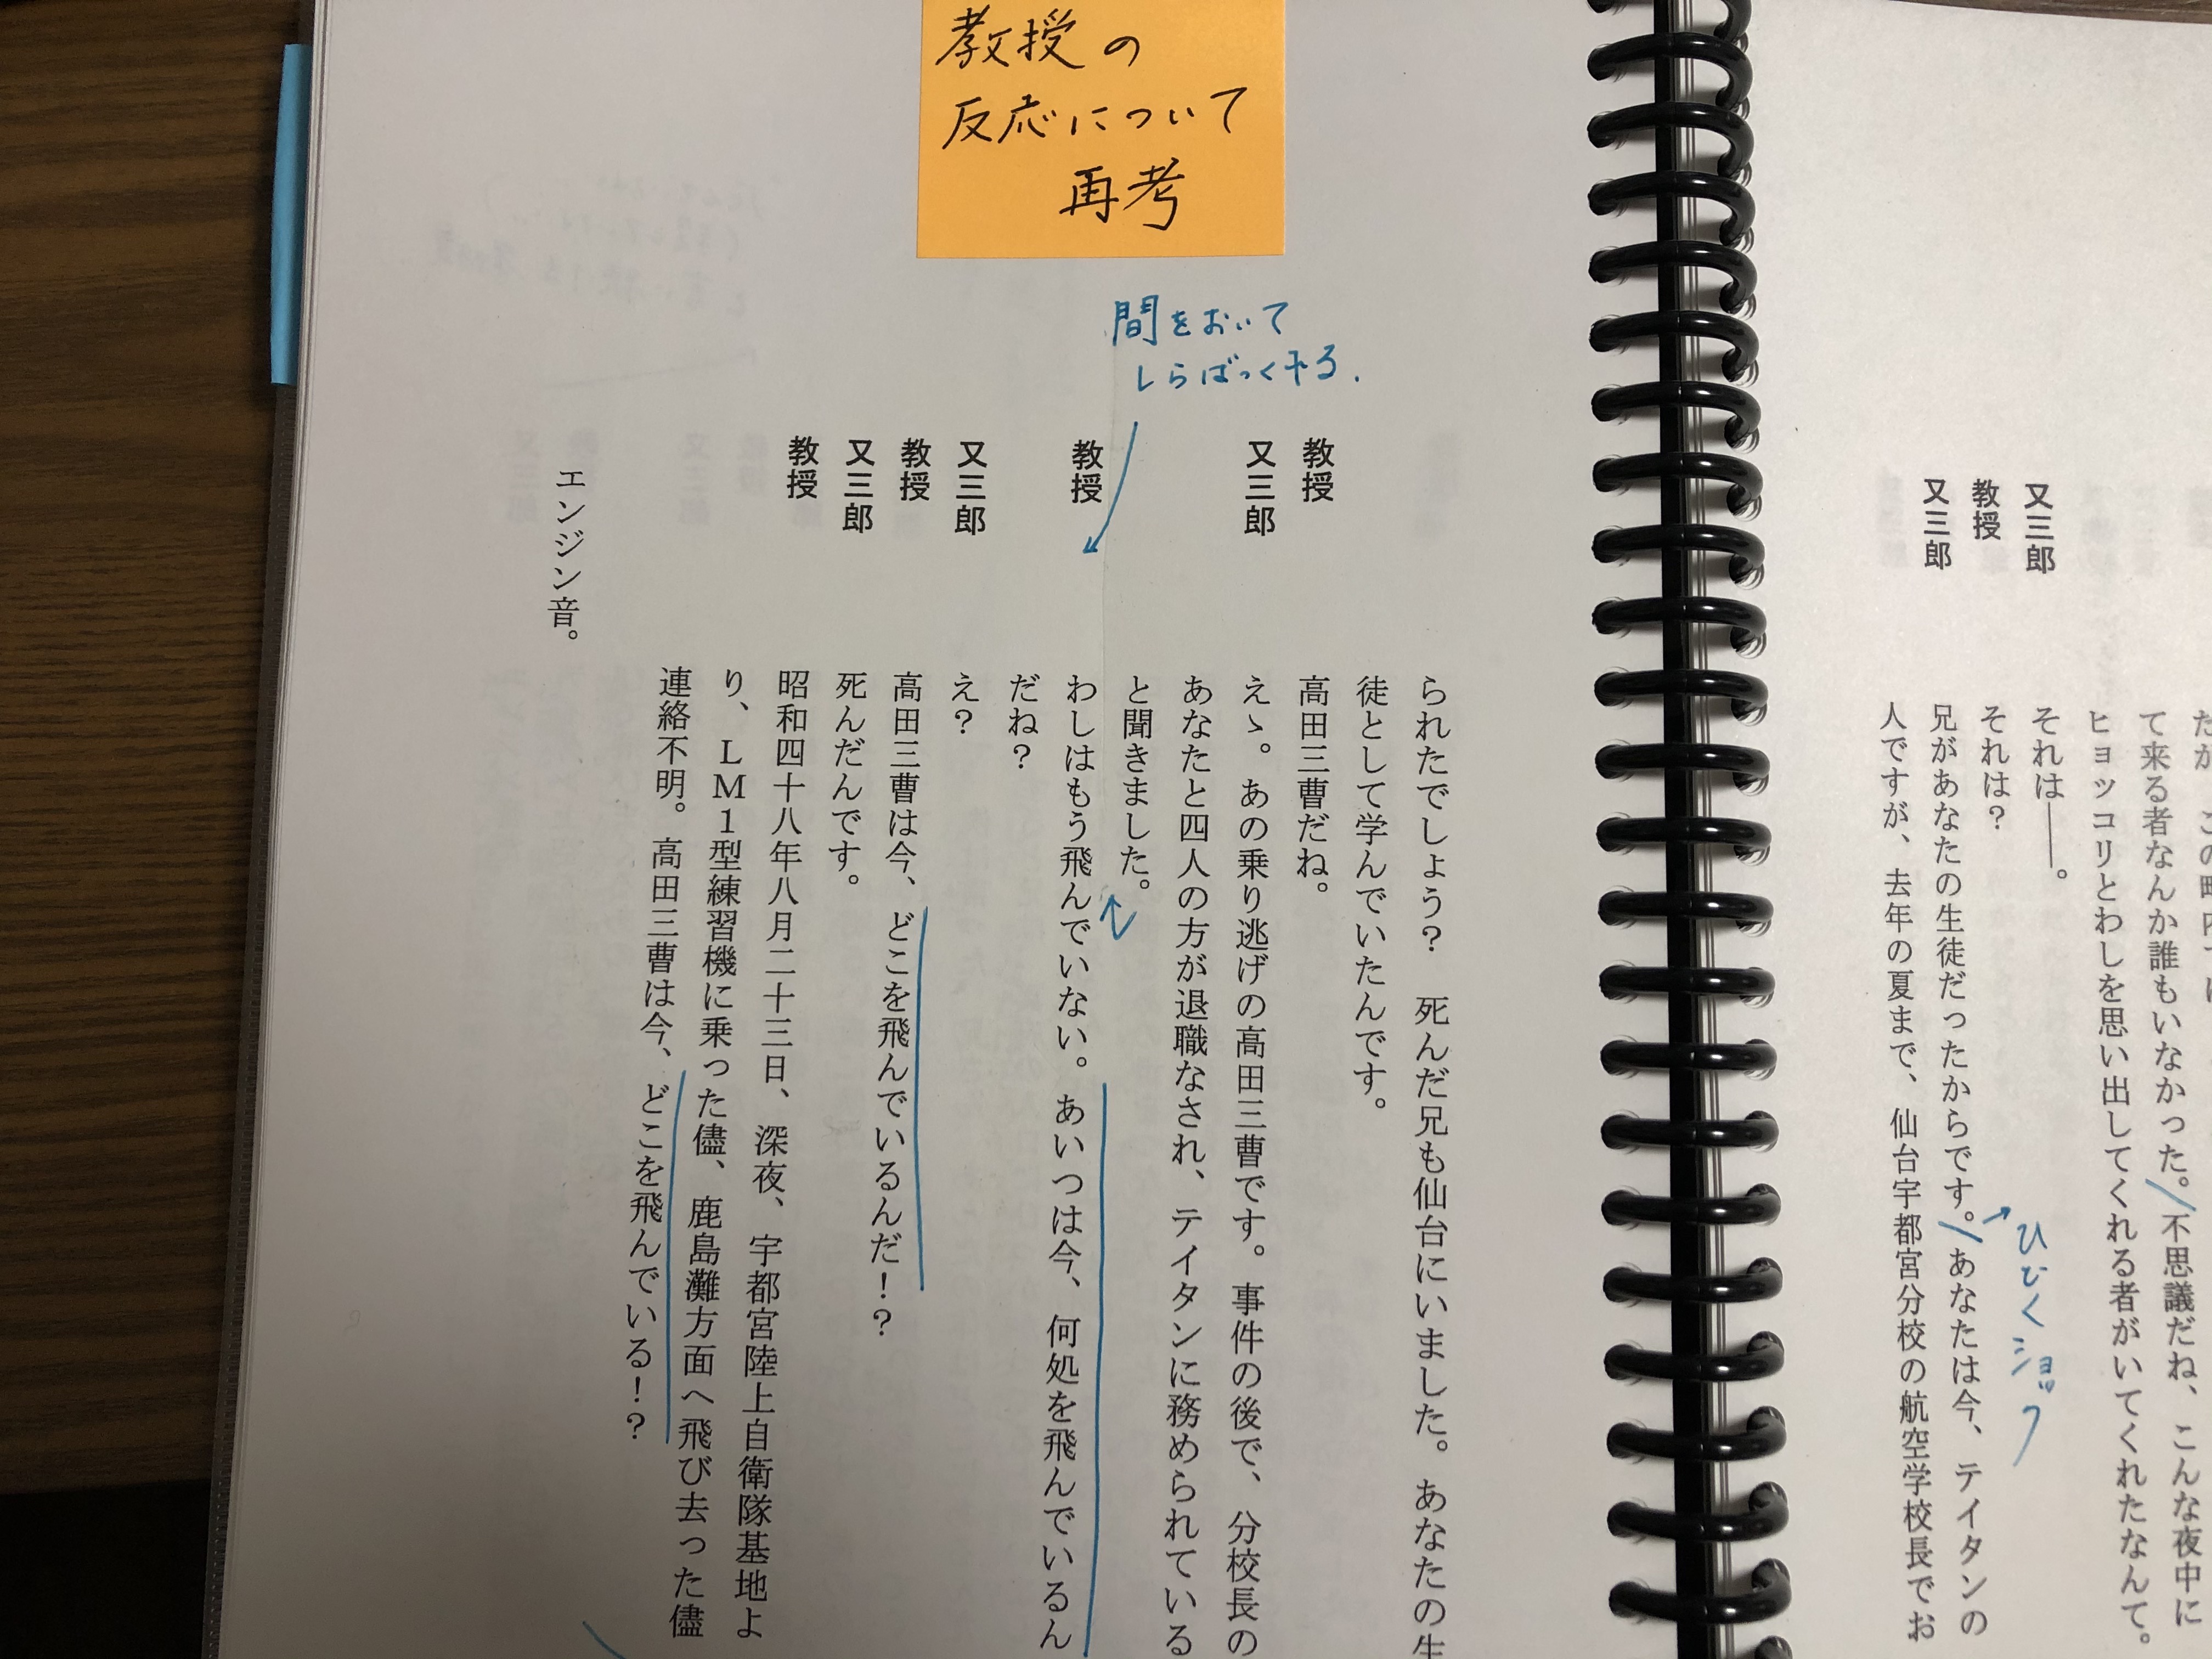 教授の
反応について
再考
だが、この町内では
て来る者なんか誰もいなかった。不思議だね、こんな夜中に
ヒョッコリとわしを思い出してくれる者がいてくれたなんて。
又三郎 それは――。
教授 それは？
又三郎 兄があなたの生徒だったからです。あなたは今、テイタンの
人ですが、去年の夏まで、仙台宇都宮分校の航空学校長でお
ひびくショック
られたでしょう？ 死んだ兄も仙台にいました。あなたの生
徒として学んでいたんです。
教授 高田三曹だね。
又三郎 えゝ。あの乗り逃げの高田三曹です。事件の後で、分校長の
あなたと四人の方が退職なされ、テイタンに務められている
と聞きました。
間をおいて
しらばっくれる.
教授 わしはもう飛んでいない。あいつは今、何処を飛んでいるん
だね？
又三郎 え？
教授 高田三曹は今、どこを飛んでいるんだ！？
又三郎 死んだんです。
教授 昭和四十八年八月二十三日、深夜、宇都宮陸上自衛隊基地よ
り、ＬＭ１型練習機に乗った儘、鹿島灘方面へ飛び去った儘
連絡不明。高田三曹は今、どこを飛んでいる！？
エンジン音。